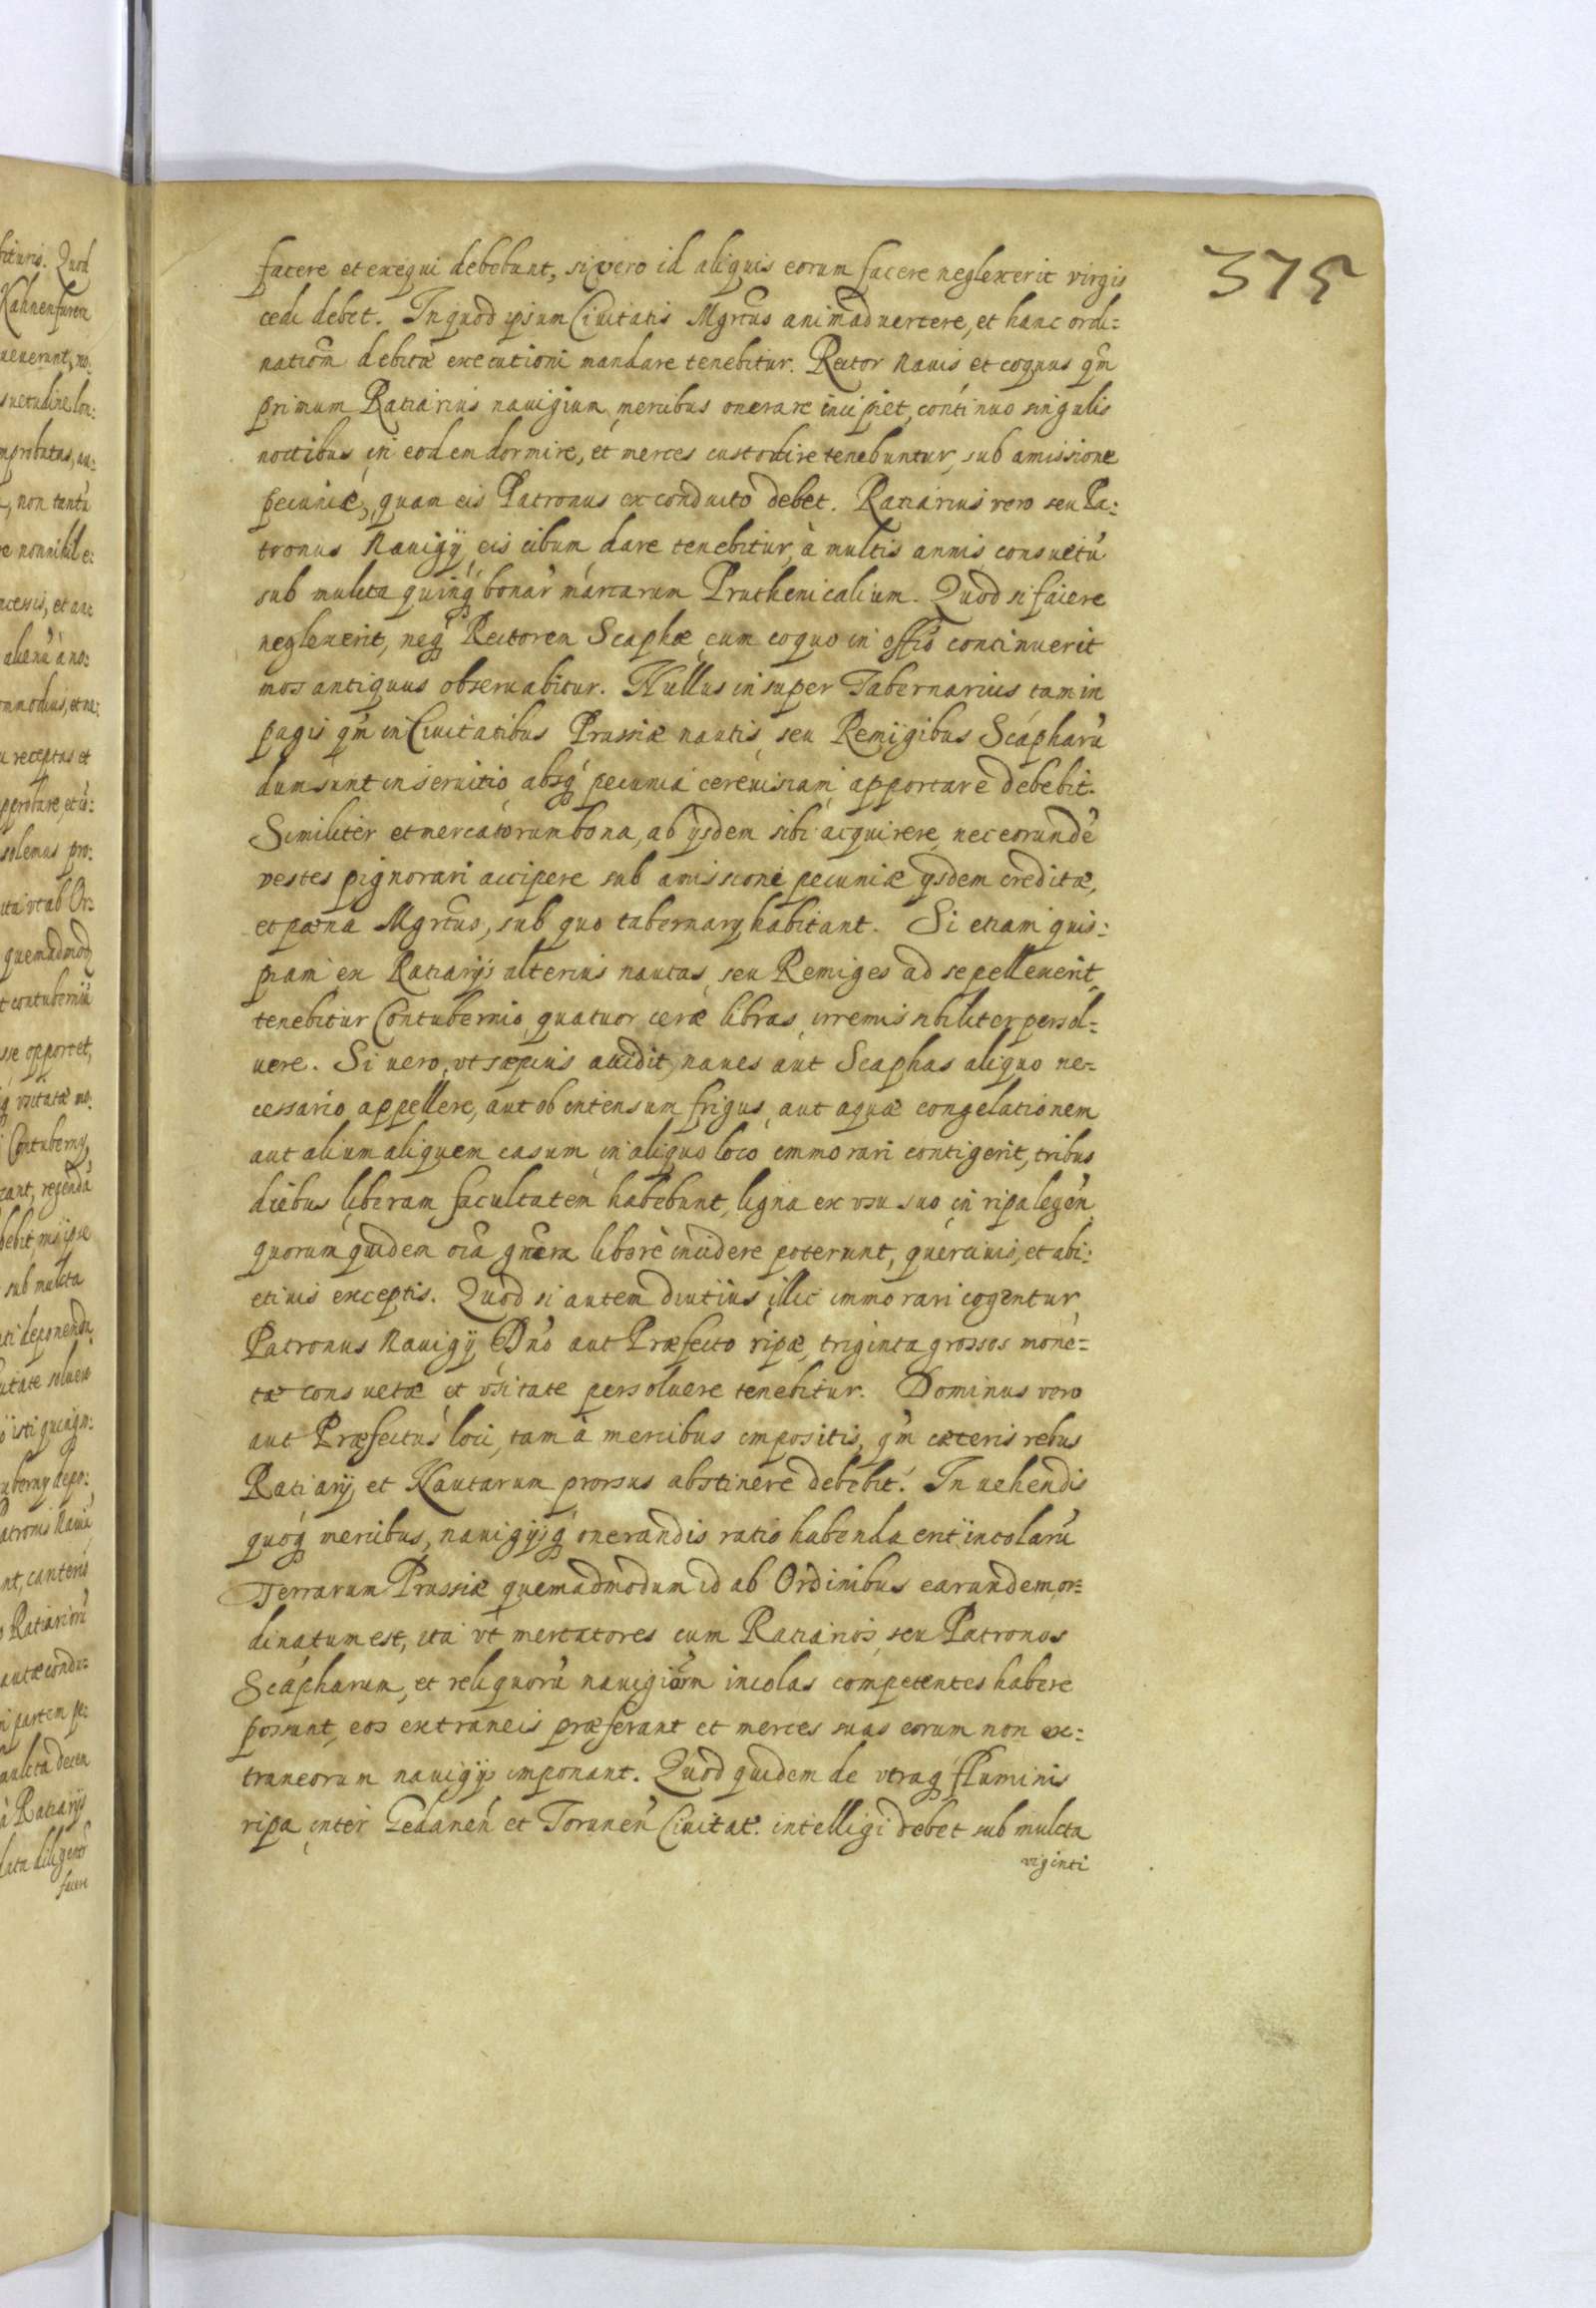 375
facere et exequi debebunt, si vero id aliquis eorum facere neglexerit virgis
cedi debet. In quod ipsum Ciuitatis Mgrtūs animaduertere, et hanc ordi:
natiōm debitæ executioni mandare tenebitur. Rector Nauis et coquus qm̄
primum Ratiarius nauigium mercibus onerare incipiet, continuo singulis
noctibus in eodem dormire, et merces custodire tenebuntur, sub amissione
pecuniæ, quam eis Patronus ex conducto debet. Ratiarius vero seu Pa:
tronus Nauigÿ, eis cibum dare tenebitur, à multis annis consuetū
sub mulcta quinq́ bonar̄ marcarum Pruthenicalium. Quod si facere
neglexerit, neq́ Rectorem Scaphæ cum coquo in offīo continuerit
mos antiquus obseruabitur. Nullus insuper Tabernarius tam in
pagis qm̄ in Ciuitatibus Prussiæ nautis, seu Remigibus Scapharū
dum sunt in seruitio absq́ pecunia cereuisiam apportare debebit.
Similiter et mercatorum bona, ab ÿsdem sibi acquirere, nec eorundē
vestes pignorari accipere sub amissione pecuniæ ÿsdem creditæ,
et pœna Mgrtūs, sub quo tabernarÿ habitant. Si etiam quis:
piam ex Ratiarÿs alterius nautas, seu Remiges ad se pellexerit,
tenebitur Contubernio quatuor ceræ libras irremissibiliter persol=
uere. Si uero, vt sæpius accidit, naues aut Scaphas aliquo ne=
cessario appellere, aut ob intensum frigus, aut aquæ congelationem
aut alium aliquem casum in aliquo loco immorari contigerit, tribus
diebus liberam facultatem habebunt, ligna ex vsu suo in ripa legen̄
quorum quidem oīa gn̄era liberè incidere poterunt, quercinis, et abi:
etinis exceptis. Quod si autem diutius illic immorari cogentur
Patronus Nauigÿ, Dn̄o aut Præfecto ripæ, triginta grossos mone=
tæ consuetæ et vsitate persoluere tenebitur. Dominus vero
aut Præfectus loci, tam à mercibus impositis, qm̄ cæteris rebus
Ratiarÿ et Nautarum prorsus abstinere debebit. In uehendis
quoq́ mercibus, nauigÿsq́ onerandis ratio habenda erit incolarū
Terrarum Prussiæ quemadmodum id ab Ordinibus earundem or=
dinatum est, ita vt mercatores cum Ratiarios, seu Patronos
Scapharum, et reliquorū nauigiōrm incolas competentes habere
possunt, eos extraneis præferant et merces suas eorum non ex:
traneorum nauigÿs imponant. Quod quidem de vtraq́ fluminis
ripa inter Gedanen̄ et Torunen̄ Ciuitat. intelligi debet sub mulcta
viginti